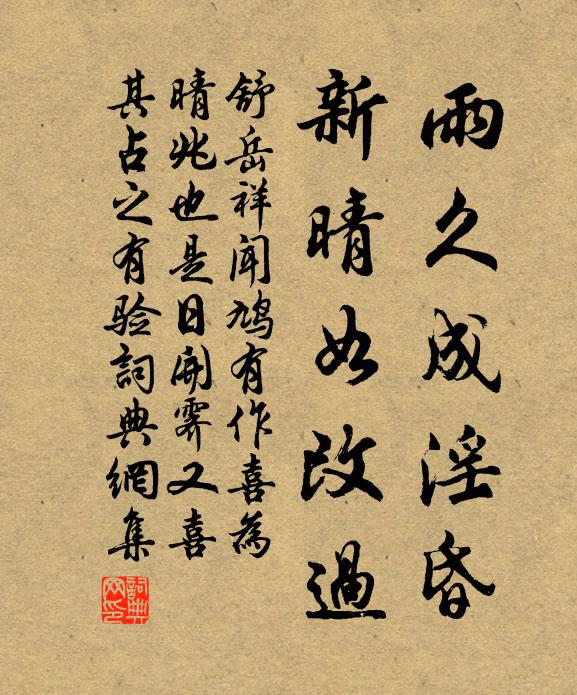 雨久成淫昏
新晴如改過
舒岳祥聞鳩有作喜為
晴兆也是日開霽又喜
其占之有验詞典網集
詞典网印